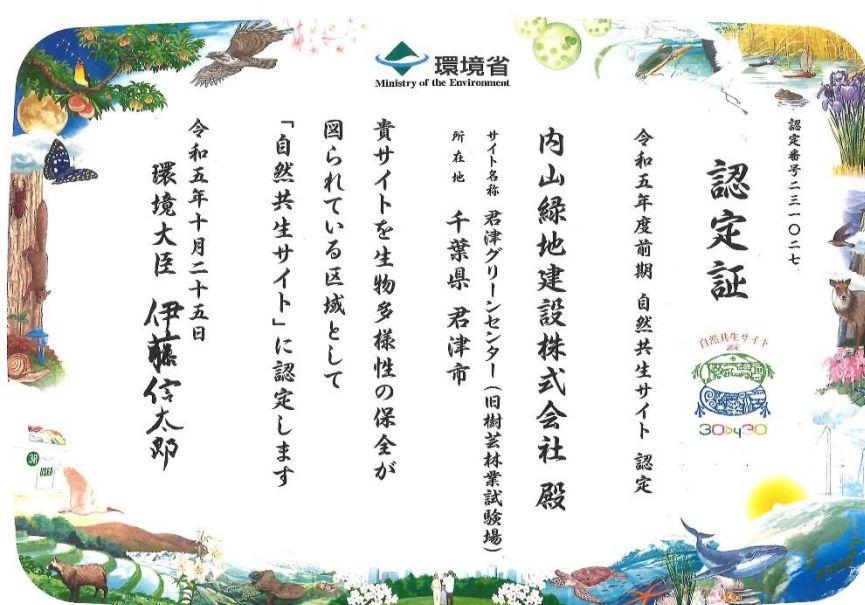 環境省
Ministry of the Environment
認定番号二三一〇二七
認定証
自然共生サイト
認定
30by30
令和五年度前期 自然共生サイト 認定
内山緑地建設株式会社 殿
サイト名称 君津グリーンセンター（旧樹芸林業試験場）
所在地 千葉県 君津市
貴サイトを生物多様性の保全が
図られている区域として
「自然共生サイト」に認定します
令和五年十月二十五日
環境大臣 伊藤信太郎
3R
USED